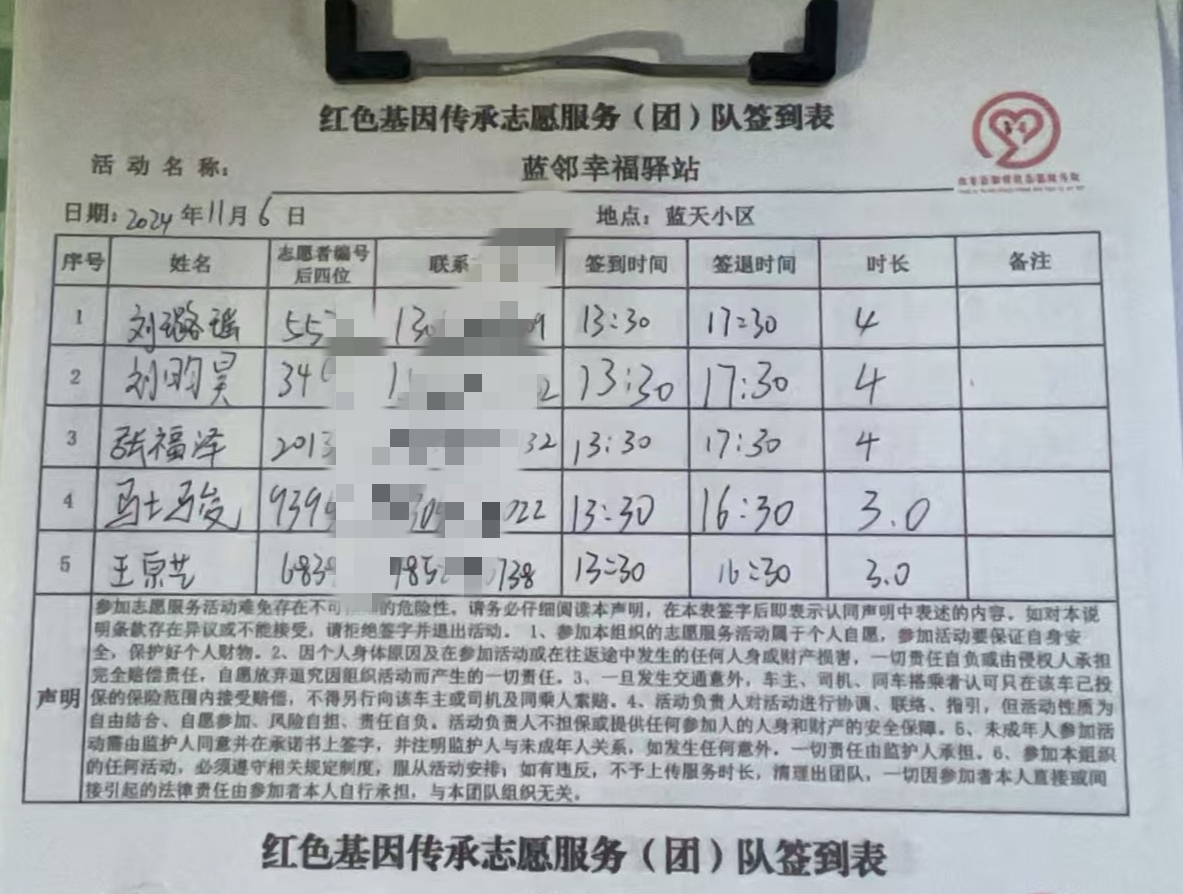 红色基因传承志愿服务（团）队签到表
活动名称： 蓝邻幸福驿站
日期：2024年11月6日 地点：蓝天小区
序号 姓名 志愿者编号后四位 联系 签到时间 签退时间 时长 备注
1 刘璐瑶 557 130 09 13:30 17:30 4
2 刘昀昊 34 1 2 13:30 17:30 4
3 张福泽 2013 32 13:30 17:30 4
4 马士骏 939 30 022 13:30 16:30 3.0
5 王原艺 6839 1985 0738 13:30 16:30 3.0
声明
参加志愿服务活动难免存在不可 的危险性。请务必仔细阅读本声明，在本表签字后即表示认同声明中表述的内容。如对本说
明条款存在异议或不能接受，请拒绝签字并退出活动。 1、参加本组织的志愿服务活动属于个人自愿，参加活动要保证自身安
全，保护好个人财物。2、因个人身体原因及在参加活动或在往返途中发生的任何人身或财产损害，一切责任自负或由侵权人承担
完全赔偿责任，自愿放弃追究因组织活动而产生的一切责任。3、一旦发生交通意外，车主、司机、同车搭乘者认可只在该车已投
保的保险范围内接受赔偿，不得另行向该车主或司机及同乘人索赔。4、活动负责人对活动进行协调、联络、指引，但活动性质为
自由结合、自愿参加、风险自担、责任自负。活动负责人不担保或提供任何参加人的人身和财产的安全保障。5、未成年人参加活
动需由监护人同意并在承诺书上签字，并注明监护人与未成年人关系，如发生任何意外，一切责任由监护人承担。6、参加本组织
的任何活动，必须遵守相关规定制度，服从活动安排；如有违反，不予上传服务时长，清理出团队，一切因参加者本人直接或间
接引起的法律责任由参加者本人自行承担，与本团队组织无关。
红色基因传承志愿服务（团）队签到表